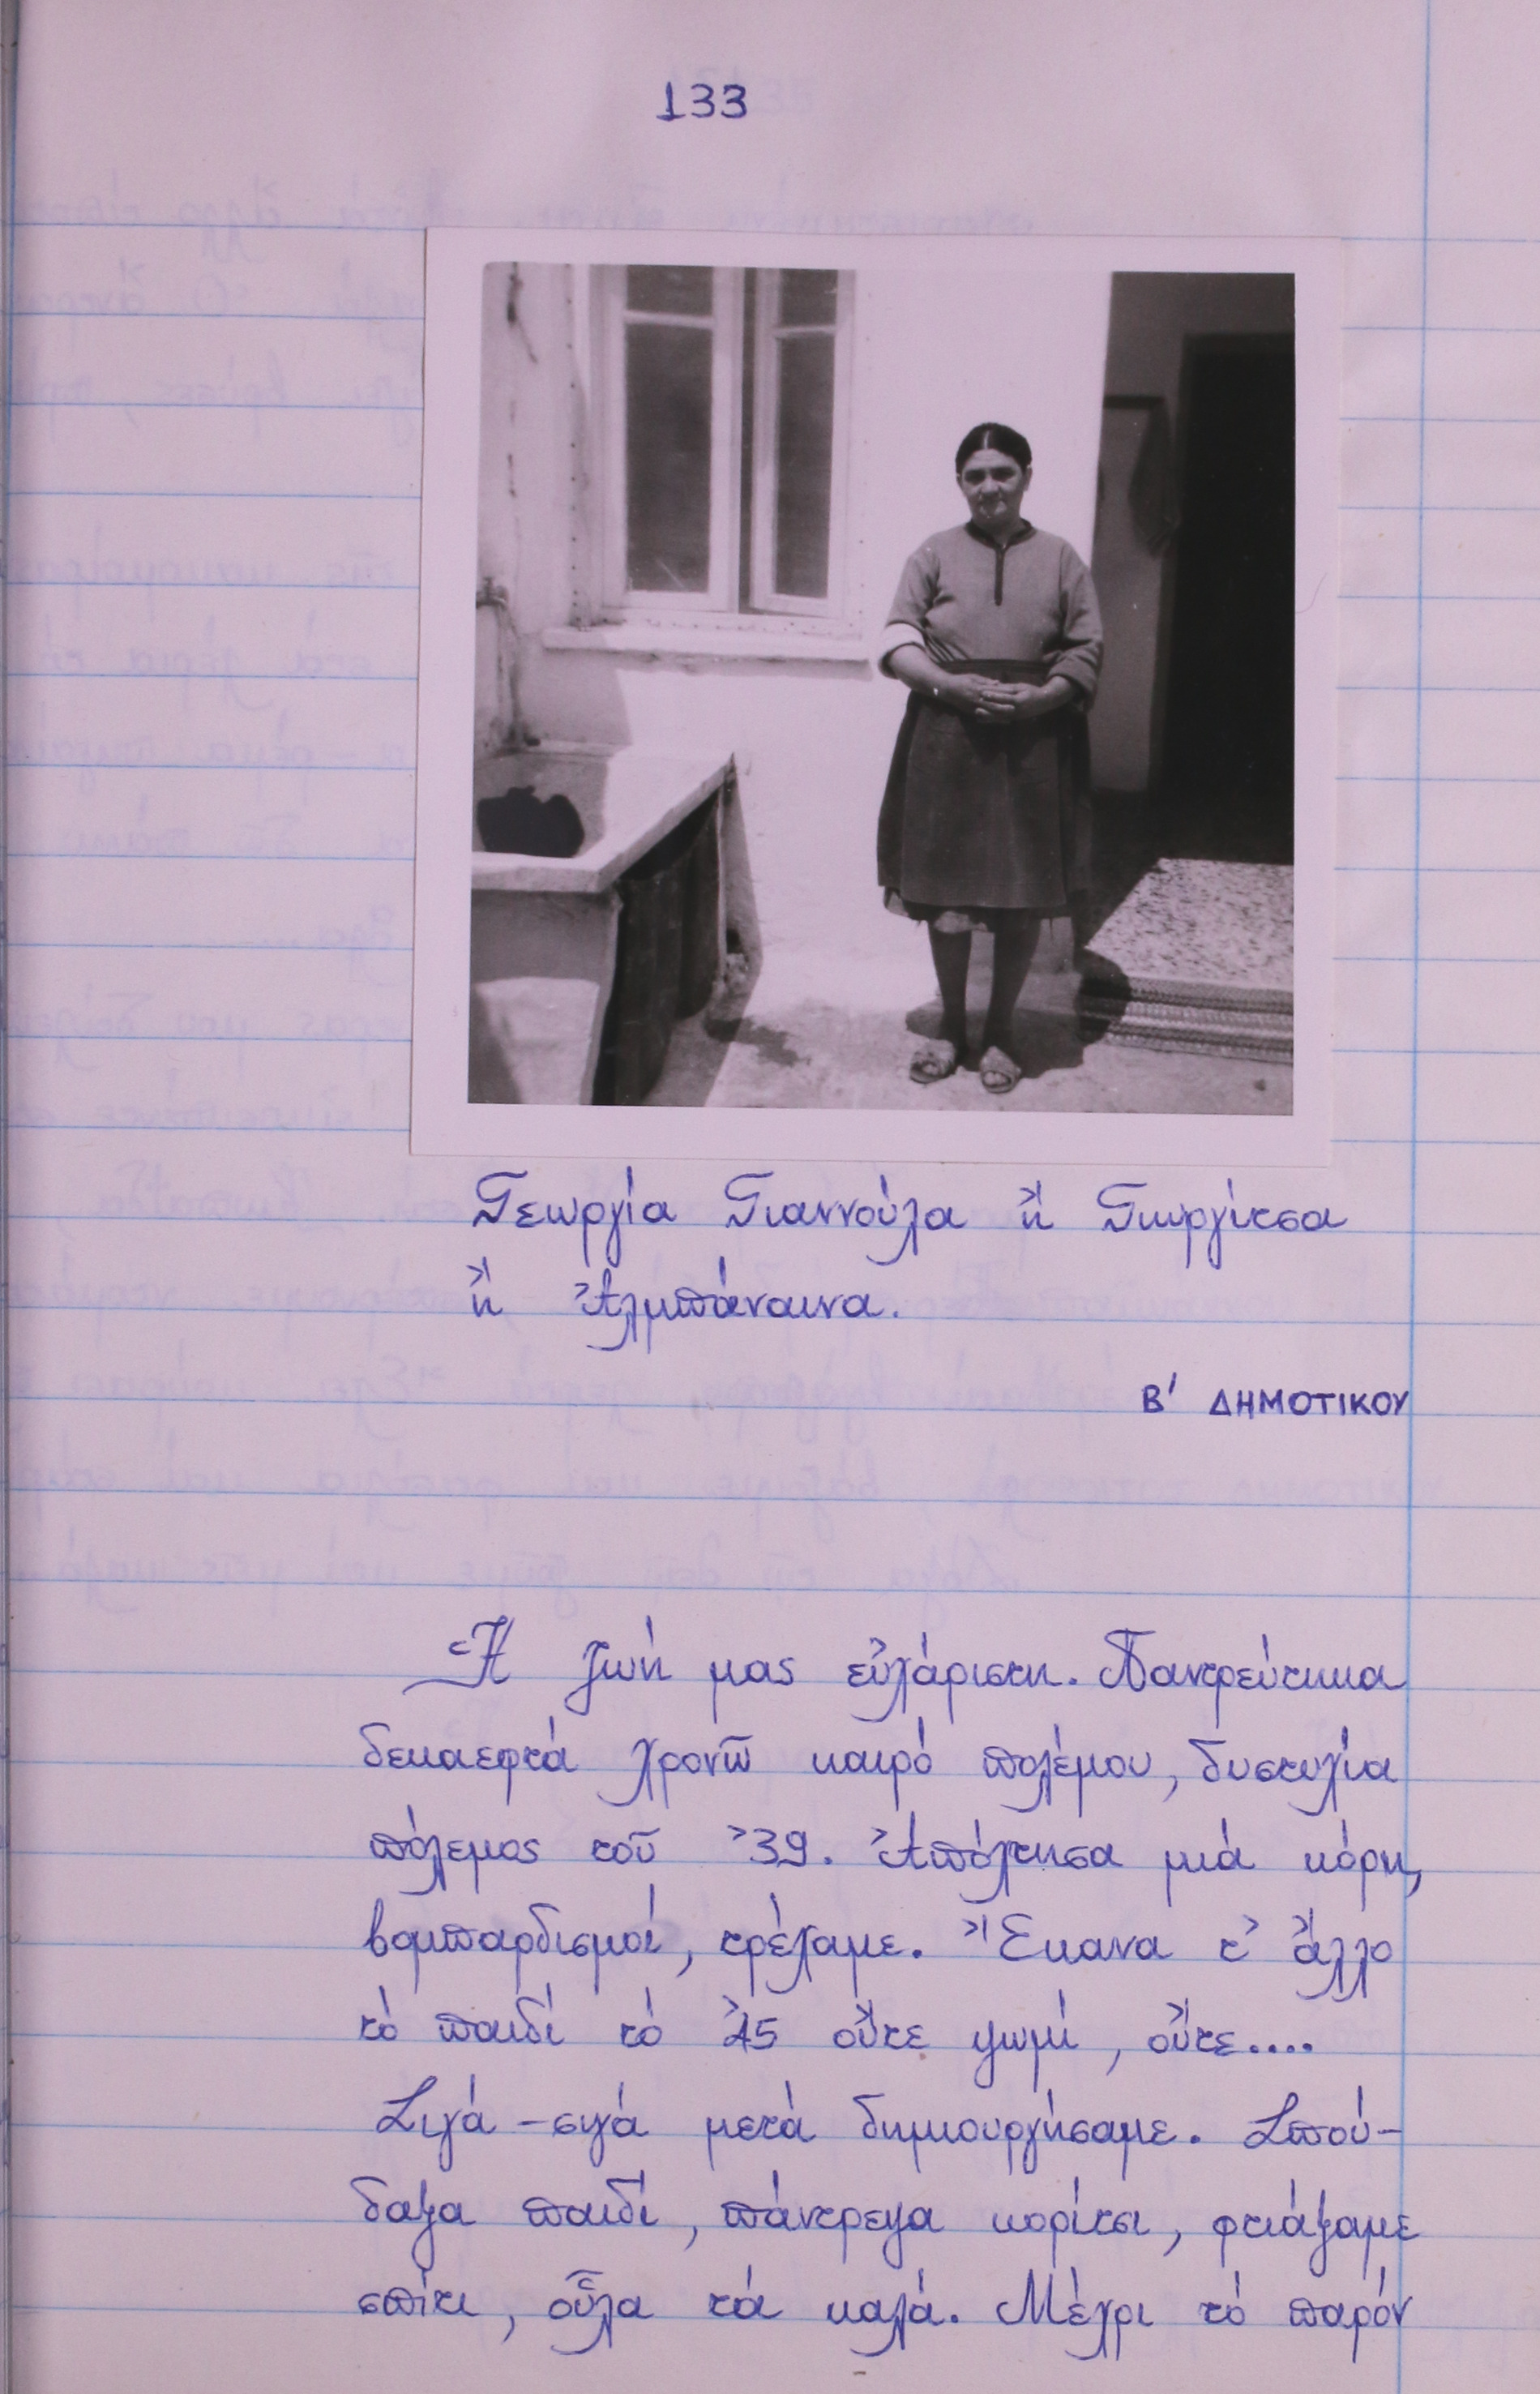 133
Γεωργία Γιαννούλα ἤ Γιωργίτσα
ἤ Ἀλμπάναινα.
Β' ΔΗΜΟΤΙΚΟΥ
Ἡ ζωή μας εὐχάριστη. Παντρεύτηκα
δεκαεφτά χρονῶ καιρό πολέμου, δυστυχία
πόλεμος τοῦ ᾽39. Ἀπόχτησα μιά κόρη,
βομπαρδισμοί, τρέχαμε. Ἔκανα τ᾽ ἄλλο
τό παιδί τό ᾽45 οὔτε ψωμί, οὔτε....
Σιγά-σιγά μετά δημιουργήσαμε. Σπού-
δαξα παιδί, πάντρεψα κορίτσι, φτιάξαμε
σπίτι, οὗλα τά καλά. Μέχρι τό παρόν